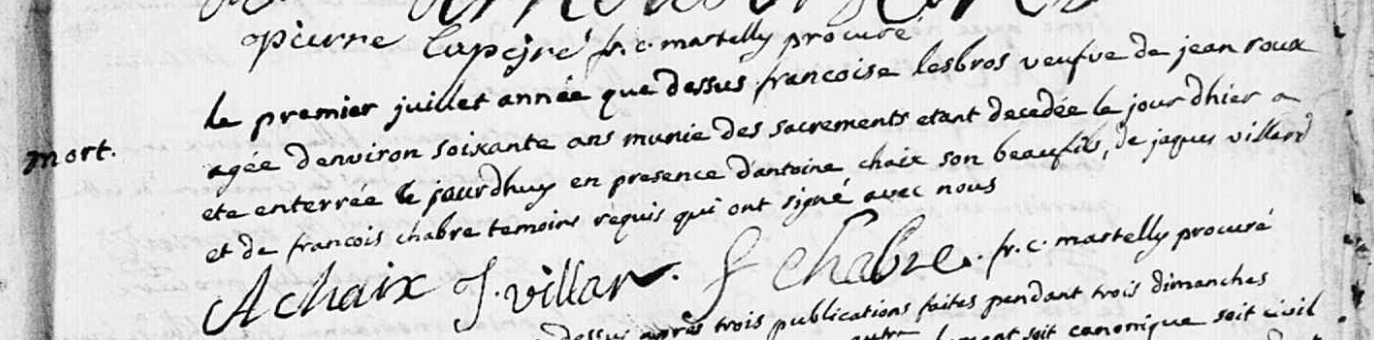 pierre Lapeyre fr. c. martelly procuré
le premier juillet année que dessus francoise lesbros veufve de jean roux
mort.
agée denviron soixante ans munie des sacrements etant decedée le jour dhier a
ete enterrée le jourdhuy en presence dantoine chaix son beaufils, de jaques villard
et de francois chabre temoins requis qui ont signé avec nous
A chaix J. villar. f chabre. fr. c. martelly procuré
dessus après trois publications faites pendant trois dimanches
soit canonique soit civil